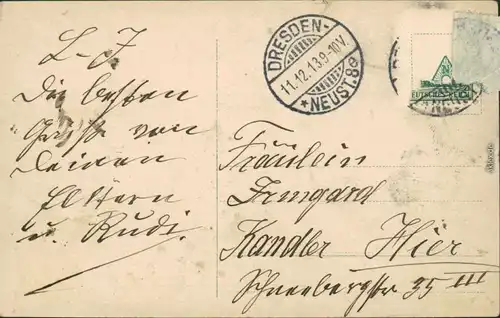 L. J.
Die besten
Grüsse von
Deinen
Eltern
u. Rudi.
DRESDEN-
11.12.13.9-10V.
*NEUST.8e
Fräulein
Irmgard
Kandler Hier
Schneebergstr 35 III